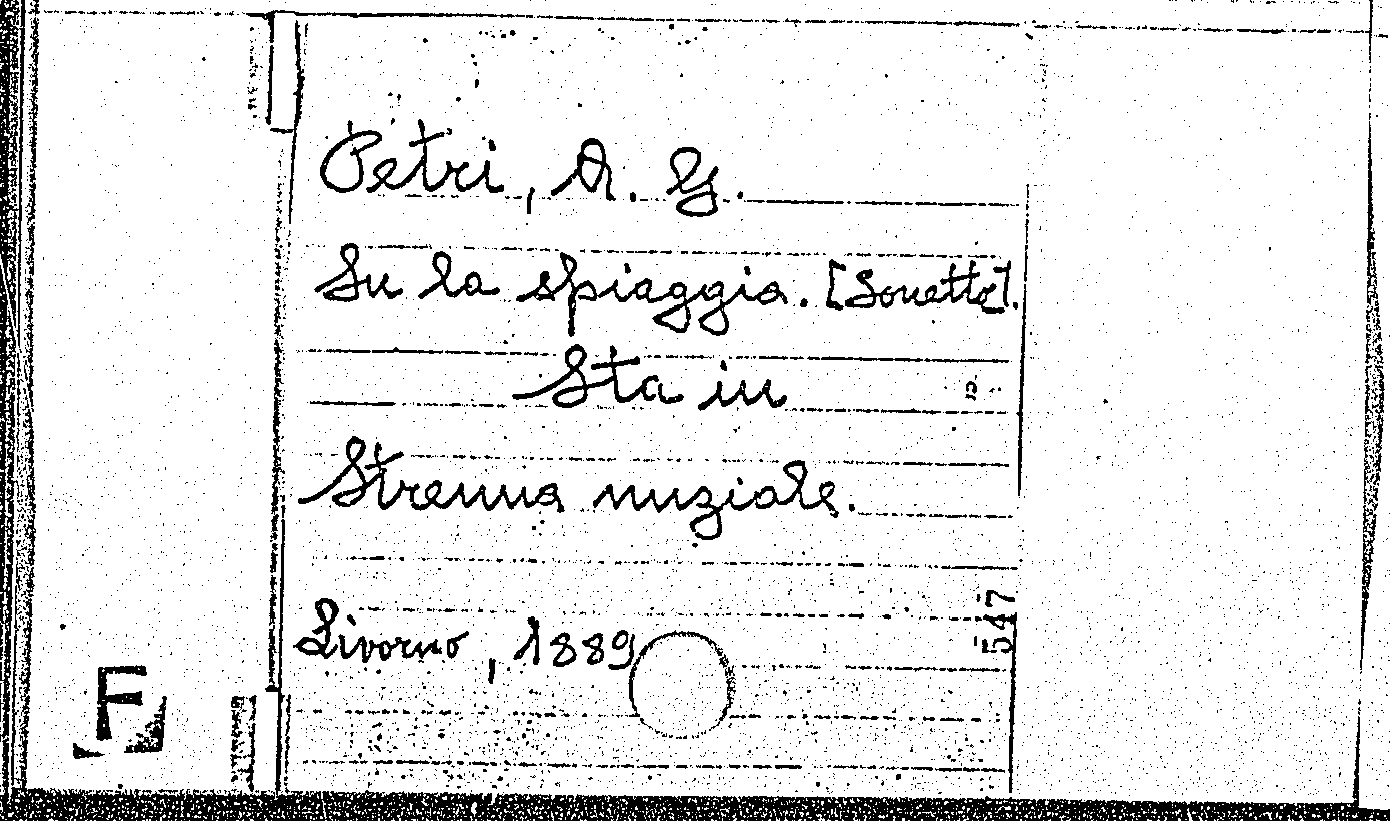 Petri, A. G.
Su la spiaggia. [Sonetto].
Sta in
Strenna nuziale.
Livorno, 1889
547
F